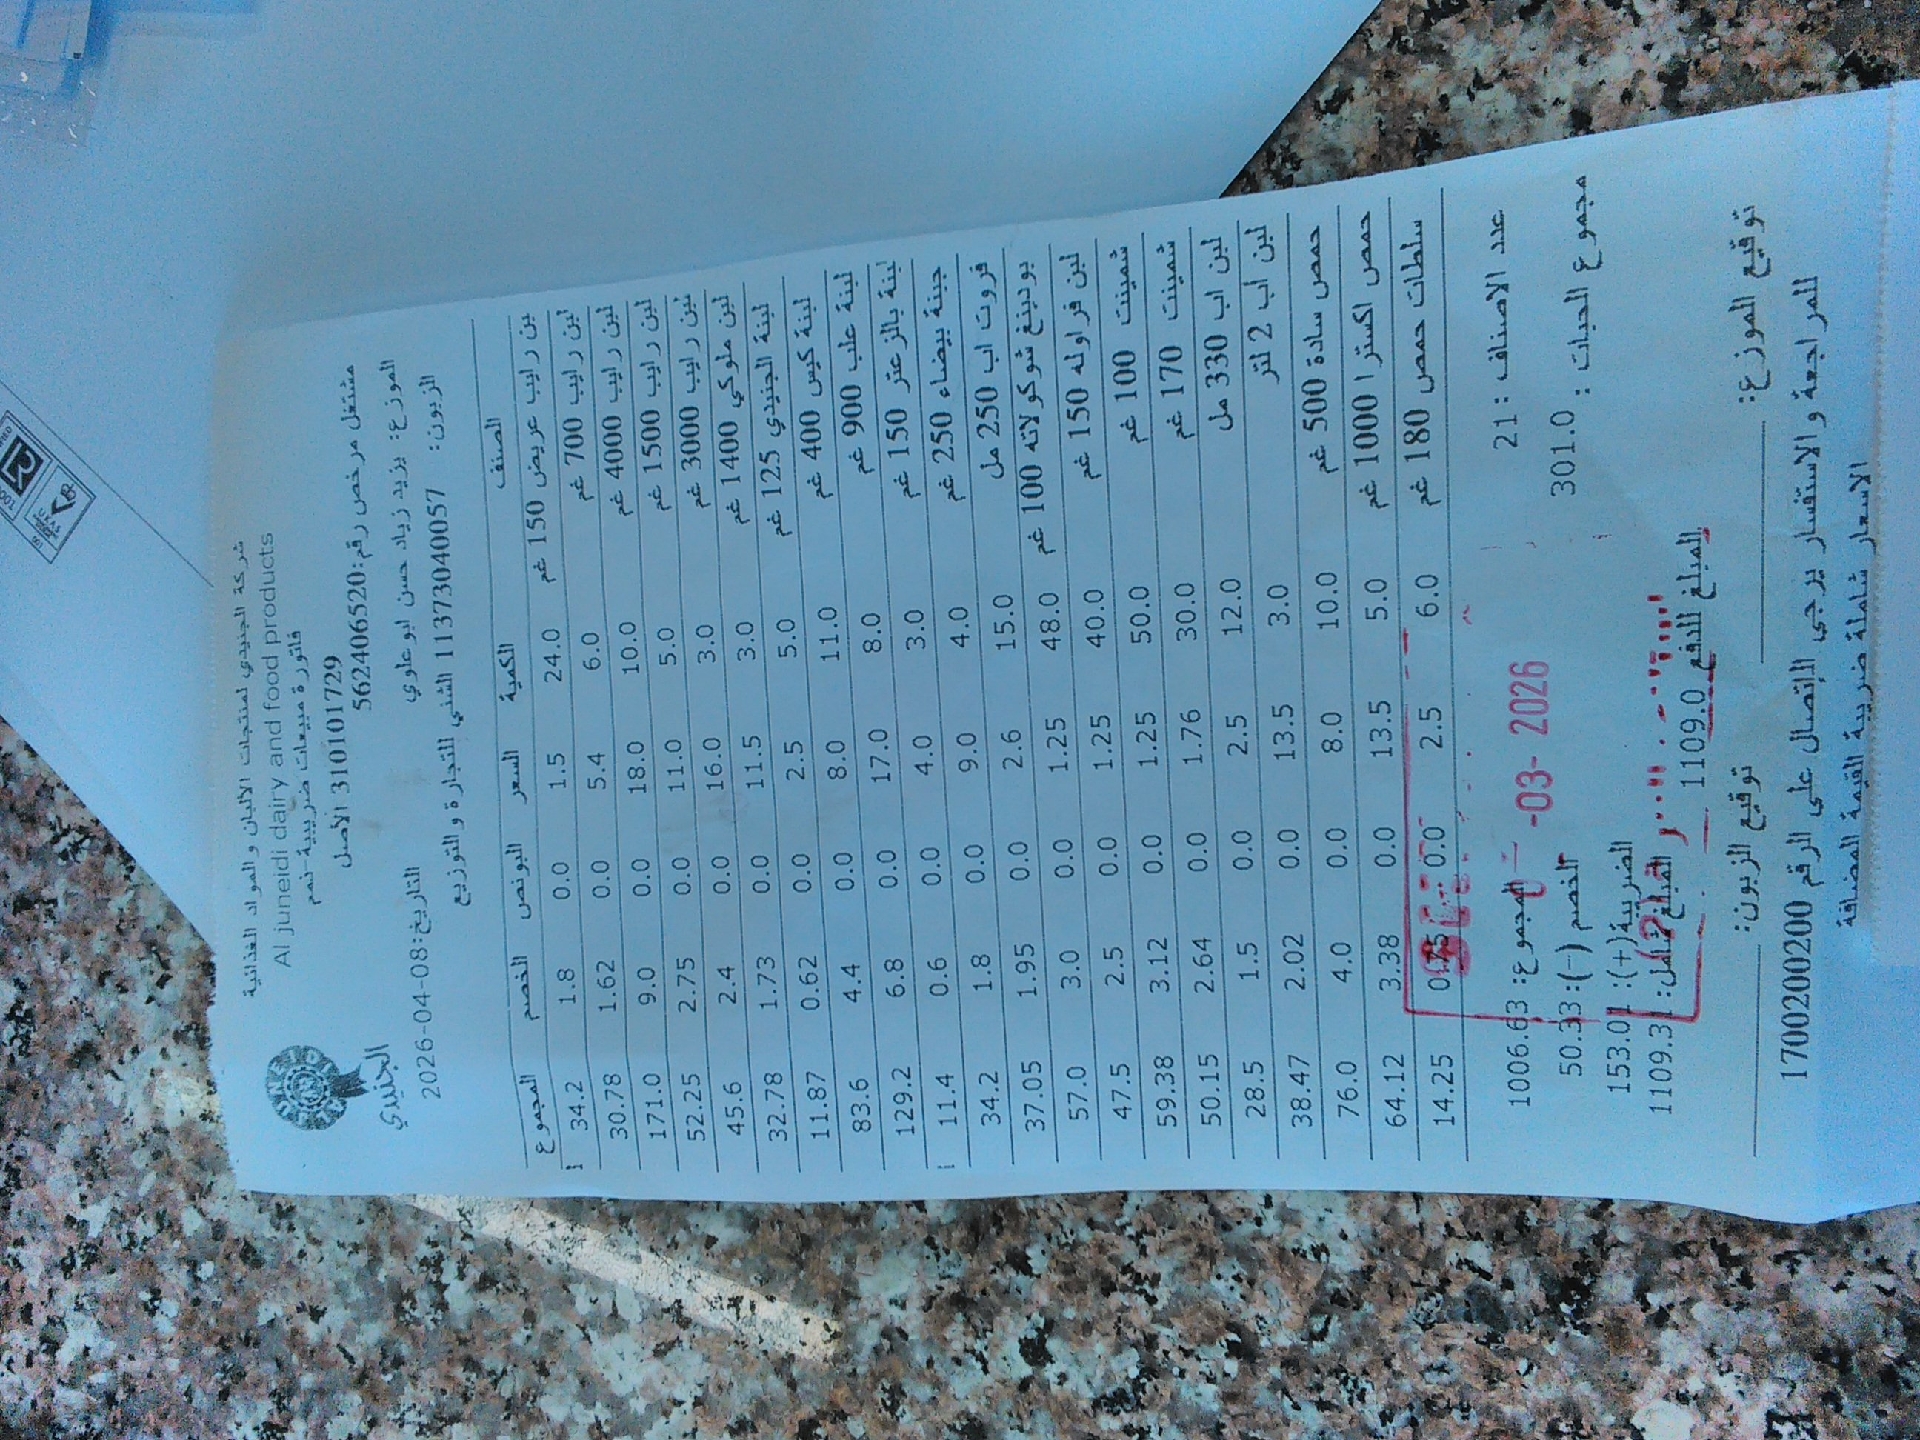 شركة الجنيدي لمنتجات الألبان والمواد الغذائية
Al juneidi dairy and food products
فاتورة مبيعات ضريبية-نمم
310101729 الأصل
مشتغل مرخص رقم:562406520
الجنيدي
الموزع: يزيد زياد حسن ابو علوي
التاريخ:2026-04-08
الزبون: 11373040057 الشني للتجارة والتوزيع
الصنف الكمية السعر البونص الخصم المجموع
لبن رايب عريض 150 غم 24.0 1.5 0.0 1.8 34.2
لبن رايب 700 غم 6.0 5.4 0.0 1.62 30.78
لبن رايب 4000 غم 10.0 18.0 0.0 9.0 171.0
لبن رايب 1500 غم 5.0 11.0 0.0 2.75 52.25
لبن رايب 3000 غم 3.0 16.0 0.0 2.4 45.6
لبن ملوكي 1400 غم 3.0 11.5 0.0 1.73 32.78
لبنة الجنيدي 125 غم 5.0 2.5 0.0 0.62 11.87
لبنة كيس 400 غم 11.0 8.0 0.0 4.4 83.6
لبنة علب 900 غم 8.0 17.0 0.0 6.8 129.2
لبنة بالزعتر 150 غم 3.0 4.0 0.0 0.6 11.4
جبنة بيضاء 250 غم 4.0 9.0 0.0 1.8 34.2
فروت اب 250 مل 15.0 2.6 0.0 1.95 37.05
بودينغ شوكولاته 100 غم 48.0 1.25 0.0 3.0 57.0
لبن فراوله 150 غم 40.0 1.25 0.0 2.5 47.5
شمينت 100 غم 50.0 1.25 0.0 3.12 59.38
شمينت 170 غم 30.0 1.76 0.0 2.64 50.15
لبن اب 330 مل 12.0 2.5 0.0 1.5 28.5
لبن اب 2 لتر 3.0 13.5 0.0 2.02 38.47
حمص سادة 500 غم 10.0 8.0 0.0 4.0 76.0
حمص اكسترا 1000 غم 5.0 13.5 0.0 3.38 64.12
سلطات حمص 180 غم 6.0 2.5 0.0 14.25
عدد الاصناف : 21
المجموع: 1006.63
-03- 2026
مجموع الحبات : 301.0
الخصم (-): 50.33
الضريبة(+): 153.01
المبلغ شامل: 1109.31
المبلغ للدفع 1109.0
توقيع الموزع:
توقيع الزبون:
للمراجعة والاستفسار يرجى الإتصال على الرقم 1700200200
الاسعار شاملة ضريبة القيمة المضافة